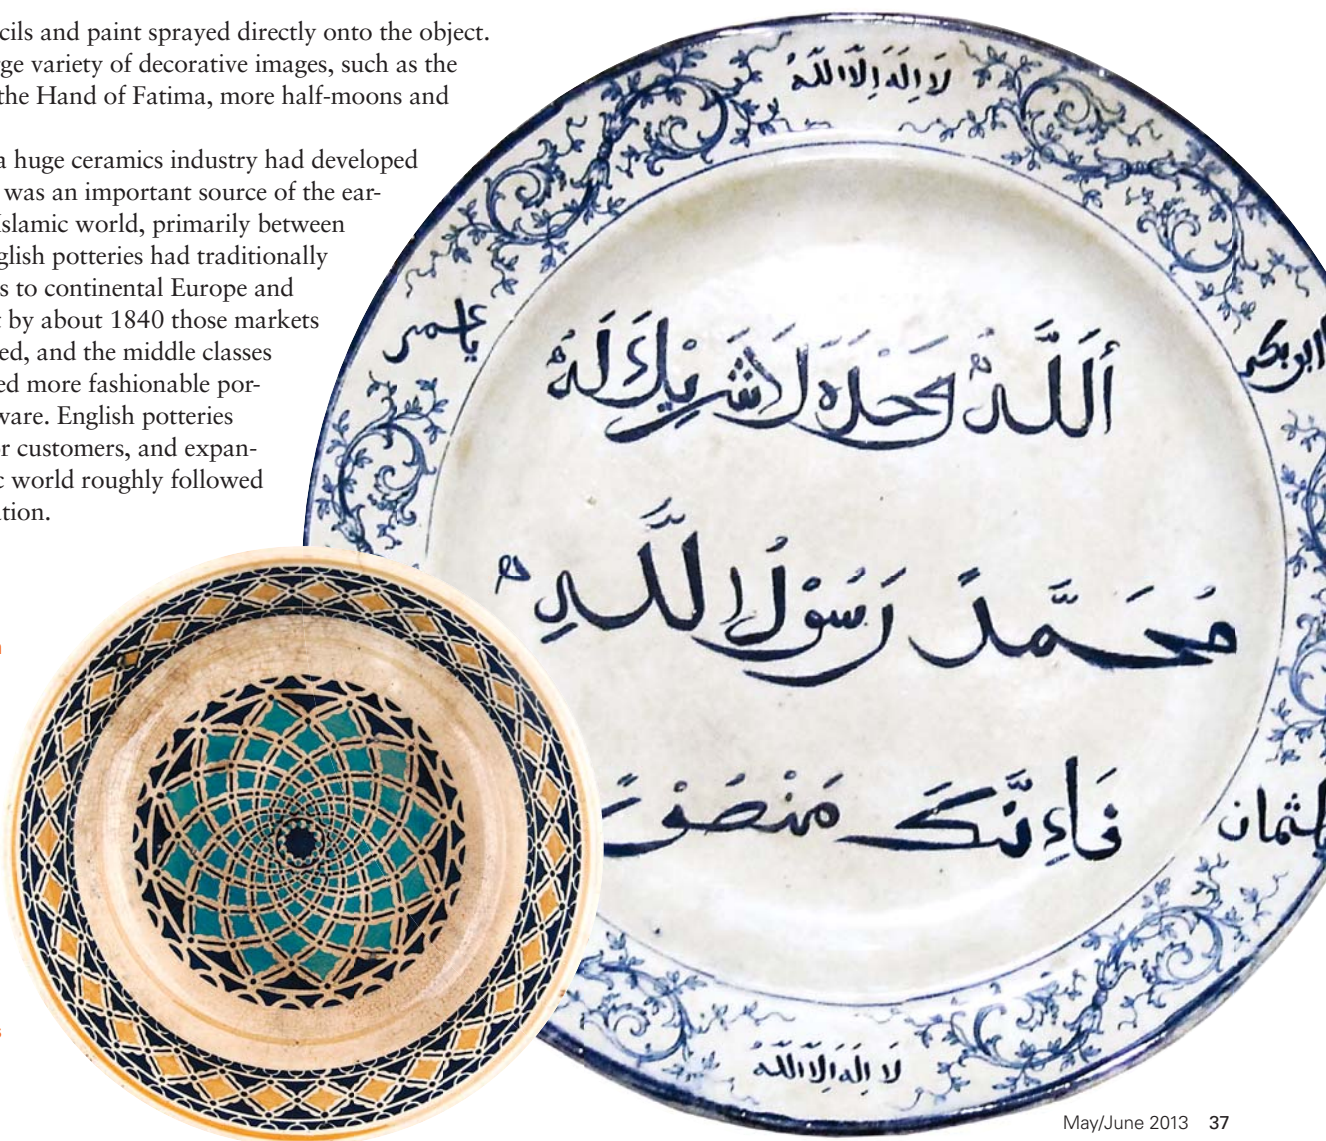 cils and paint sprayed directly onto the object.
rge variety of decorative images, such as the
the Hand of Fatima, more half-moons and
a huge ceramics industry had developed
was an important source of the ear-
Islamic world, primarily between
glish potteries had traditionally
s to continental Europe and
t by about 1840 those markets
ed, and the middle classes
ed more fashionable por-
ware. English potteries
r customers, and expan-
c world roughly followed
tion.
لَا اِلٰهَ اِلَّا اللّٰهُ
يا عمر
بكر
أَللّٰهُ وَحْدَهُ لَا شَرِيْكَ لَهُ
مُحَمَّدً رَسُوْلُ اللّٰهِ
فَاِنَّكَ مَنْصُوْرً
عثمان
لَا اِلٰهَ اِلَّا اللّٰهُ
May/June 2013 37